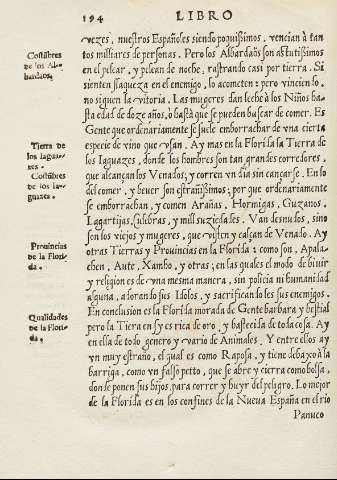 194 LIBRO
vezes, nuestros Españoles siendo poquißimos, vencian à tan
tos milliares de personas. Pero los Albardaos son astutißimos
en el pelear, y pelean de noche, rastrando casi por tierra. Si
sienten flaqueza en el enemigo, lo acometen: pero vinciendo,
no siguen la vitoria. Las mugeres dan leche à los Niños has-
ta edad de doze años, ò hasta que se pueden buscar de comer. Es
Gente que ordenariamente se suele emborrachar de vna cierta
especie de vino que vsan. Ay mas en la Florida la Tierra de
los Iaguazes, donde los hombres son tan grandes corredores,
que alcançan los Venados; y corren vn dia sin cançarse. En lo
del comer, y bever son estrañißimos; por que ordenariamente
se emborrachan, y comen Arañas, Hormigas, Guzanos,
Lagartijas, Culebras, y mill suziedades. Van desnudos, sino
son los viejos y mugeres, que visten y calçan de Venado. Ay
otras Tierras y Provincias en la Florida: como son, Apala-
chen, Aute, Xambo, y otras; en las quales el modo de bivir
y religion es de vna mesma manera, sin policia ni humanidad
alguna, adorando sus Idolos, y sacrificandoles sus enemigos.
En conclusion es la Florida morada de Gente barbara y bestial
pero la Tiera en sy es rica de oro, y bastecida de toda cosa. Ay
en ella de todo genero y vario de Animales. Y entre ellos ay
vn muy estraño, el qual es como Raposa, y tiene debaxo à la
barriga, como vn falso petto, que se abre y cierra como bolsa,
donde ponen sus hijos, para correr y huyr del peligro. Lo mejor
de la Florida es en los confines de la Nueva España en el rio
Panuco
Costũbres
de los Al-
bardaos.
Tierra de
los Iaguaz-
zes.
Costũbres
de los Ia-
guazes.
Provincias
de la Flori-
da.
Qualidades
de la Flori-
da.